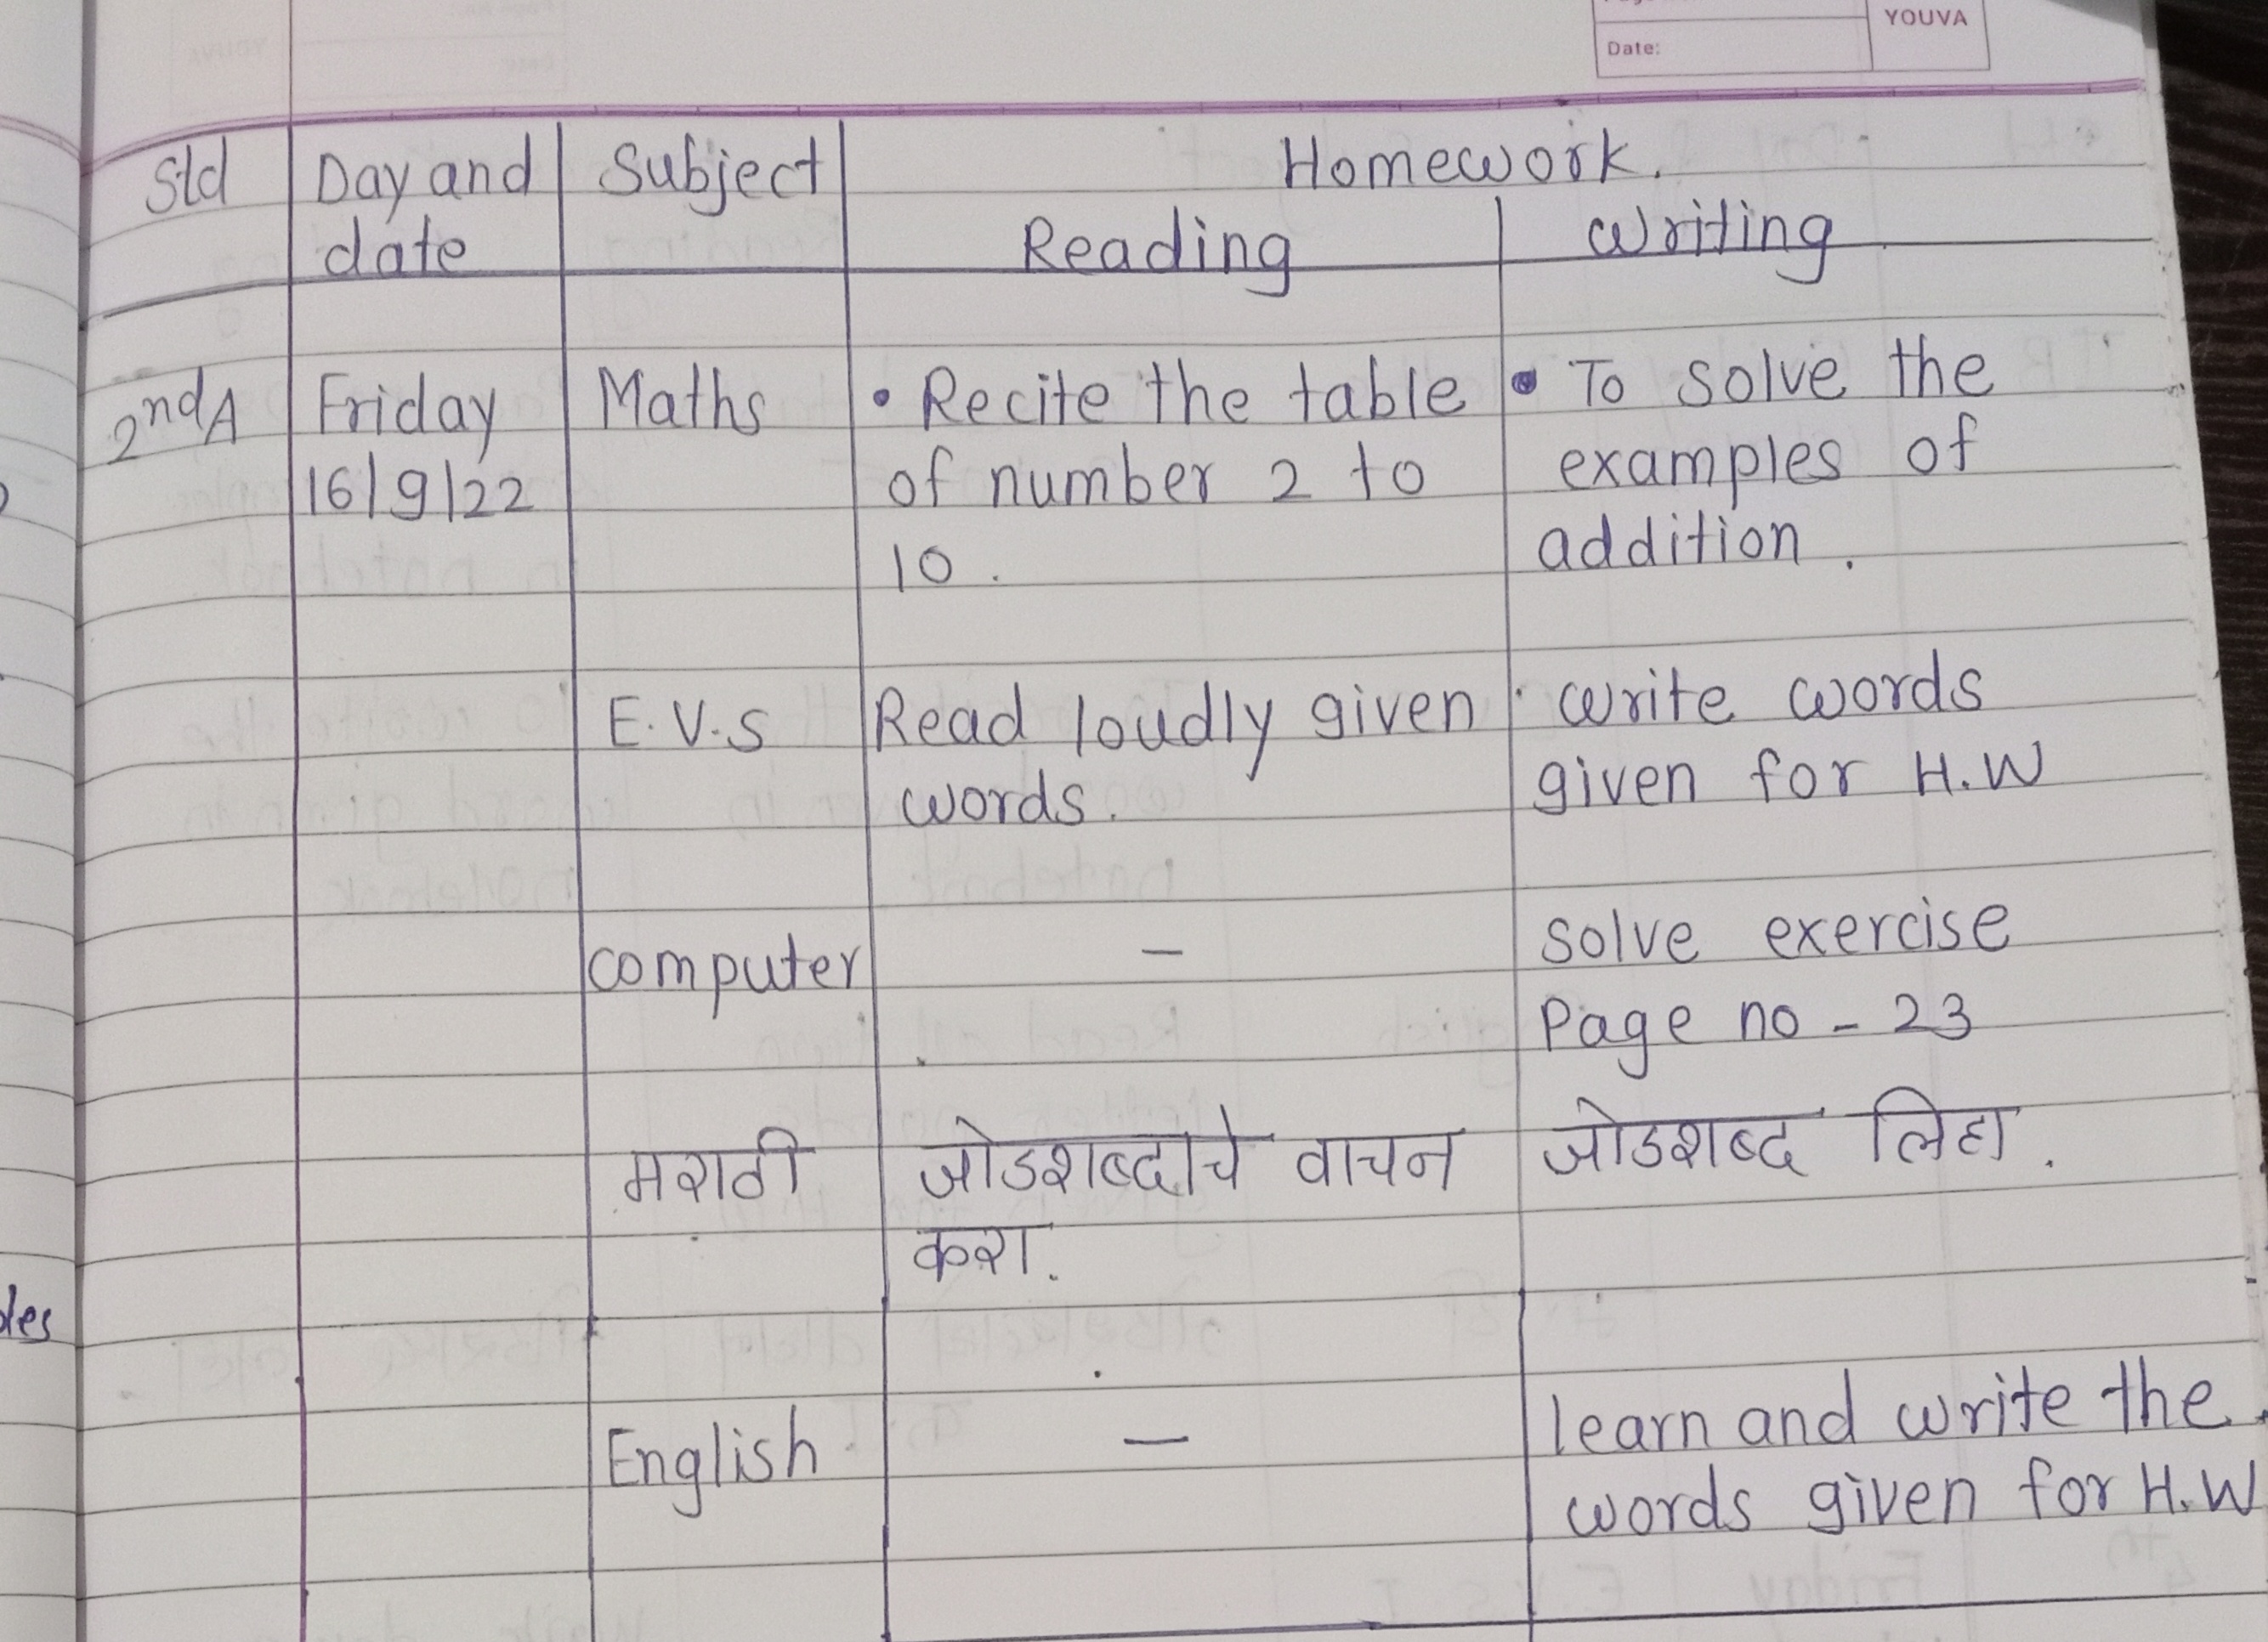 YOUVA
Date:
Std Day and Subject Homework.
date Reading Writing
2nd A Friday Maths • Recite the table • To solve the
16/9/22 of number 2 to examples of
10. addition.
E.V.S Read loudly given • write words
words. given for H.W
computer - solve exercise
Page no - 23
मराठी जोडशब्दाचे वाचन जोडशब्द लिहा.
करा.
English - learn and write the
words given for H.W